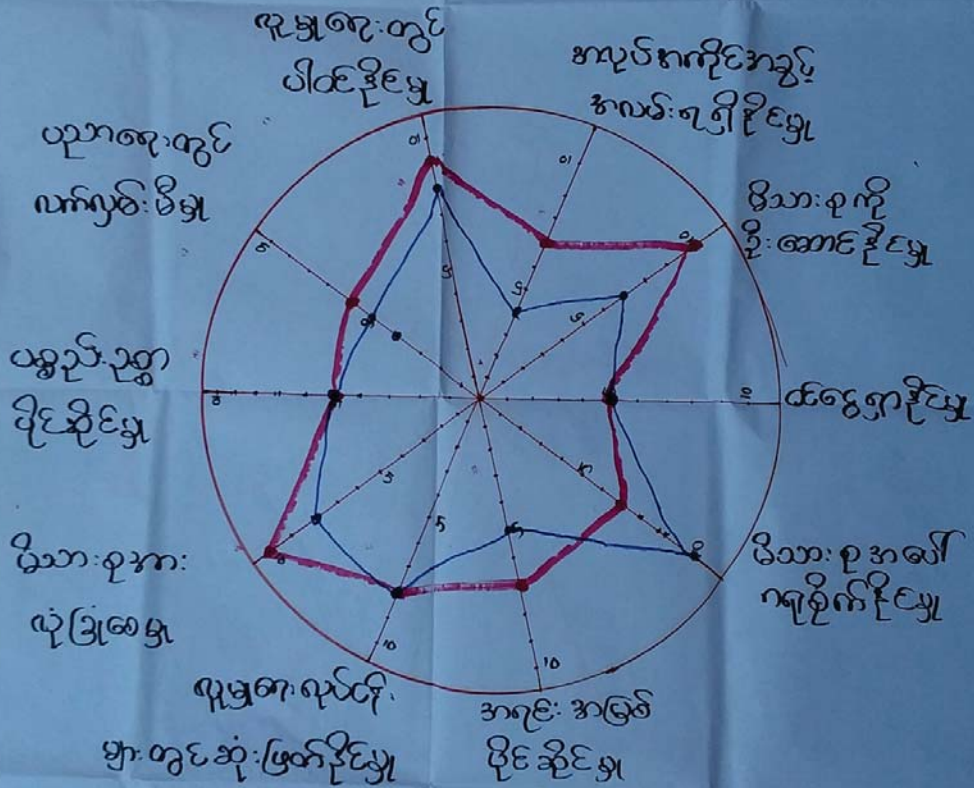 လူမှုရေးတွင်
ပါဝင်နိုင်မှု
အလုပ်အကိုင်အခွင့်
အလမ်းရရှိနိုင်မှု
မိသားစုကို
ဦးဆောင်နိုင်မှု
ဝင်ငွေရှာနိုင်မှု
မိသားစုအပေါ်
ဂရုစိုက်နိုင်မှု
အရင်းအမြစ်
ပိုင်ဆိုင်မှု
လူမှုရေးလုပ်ငန်း
များတွင်ဆုံးဖြတ်နိုင်မှု
မိသားစုအား
လုံခြုံစေမှု
ပစ္စည်းဥစ္စာ
ပိုင်ဆိုင်မှု
ပညာရေးတွင်
လက်လှမ်းမီမှု
10
10
5
5
5
5
5
10
10